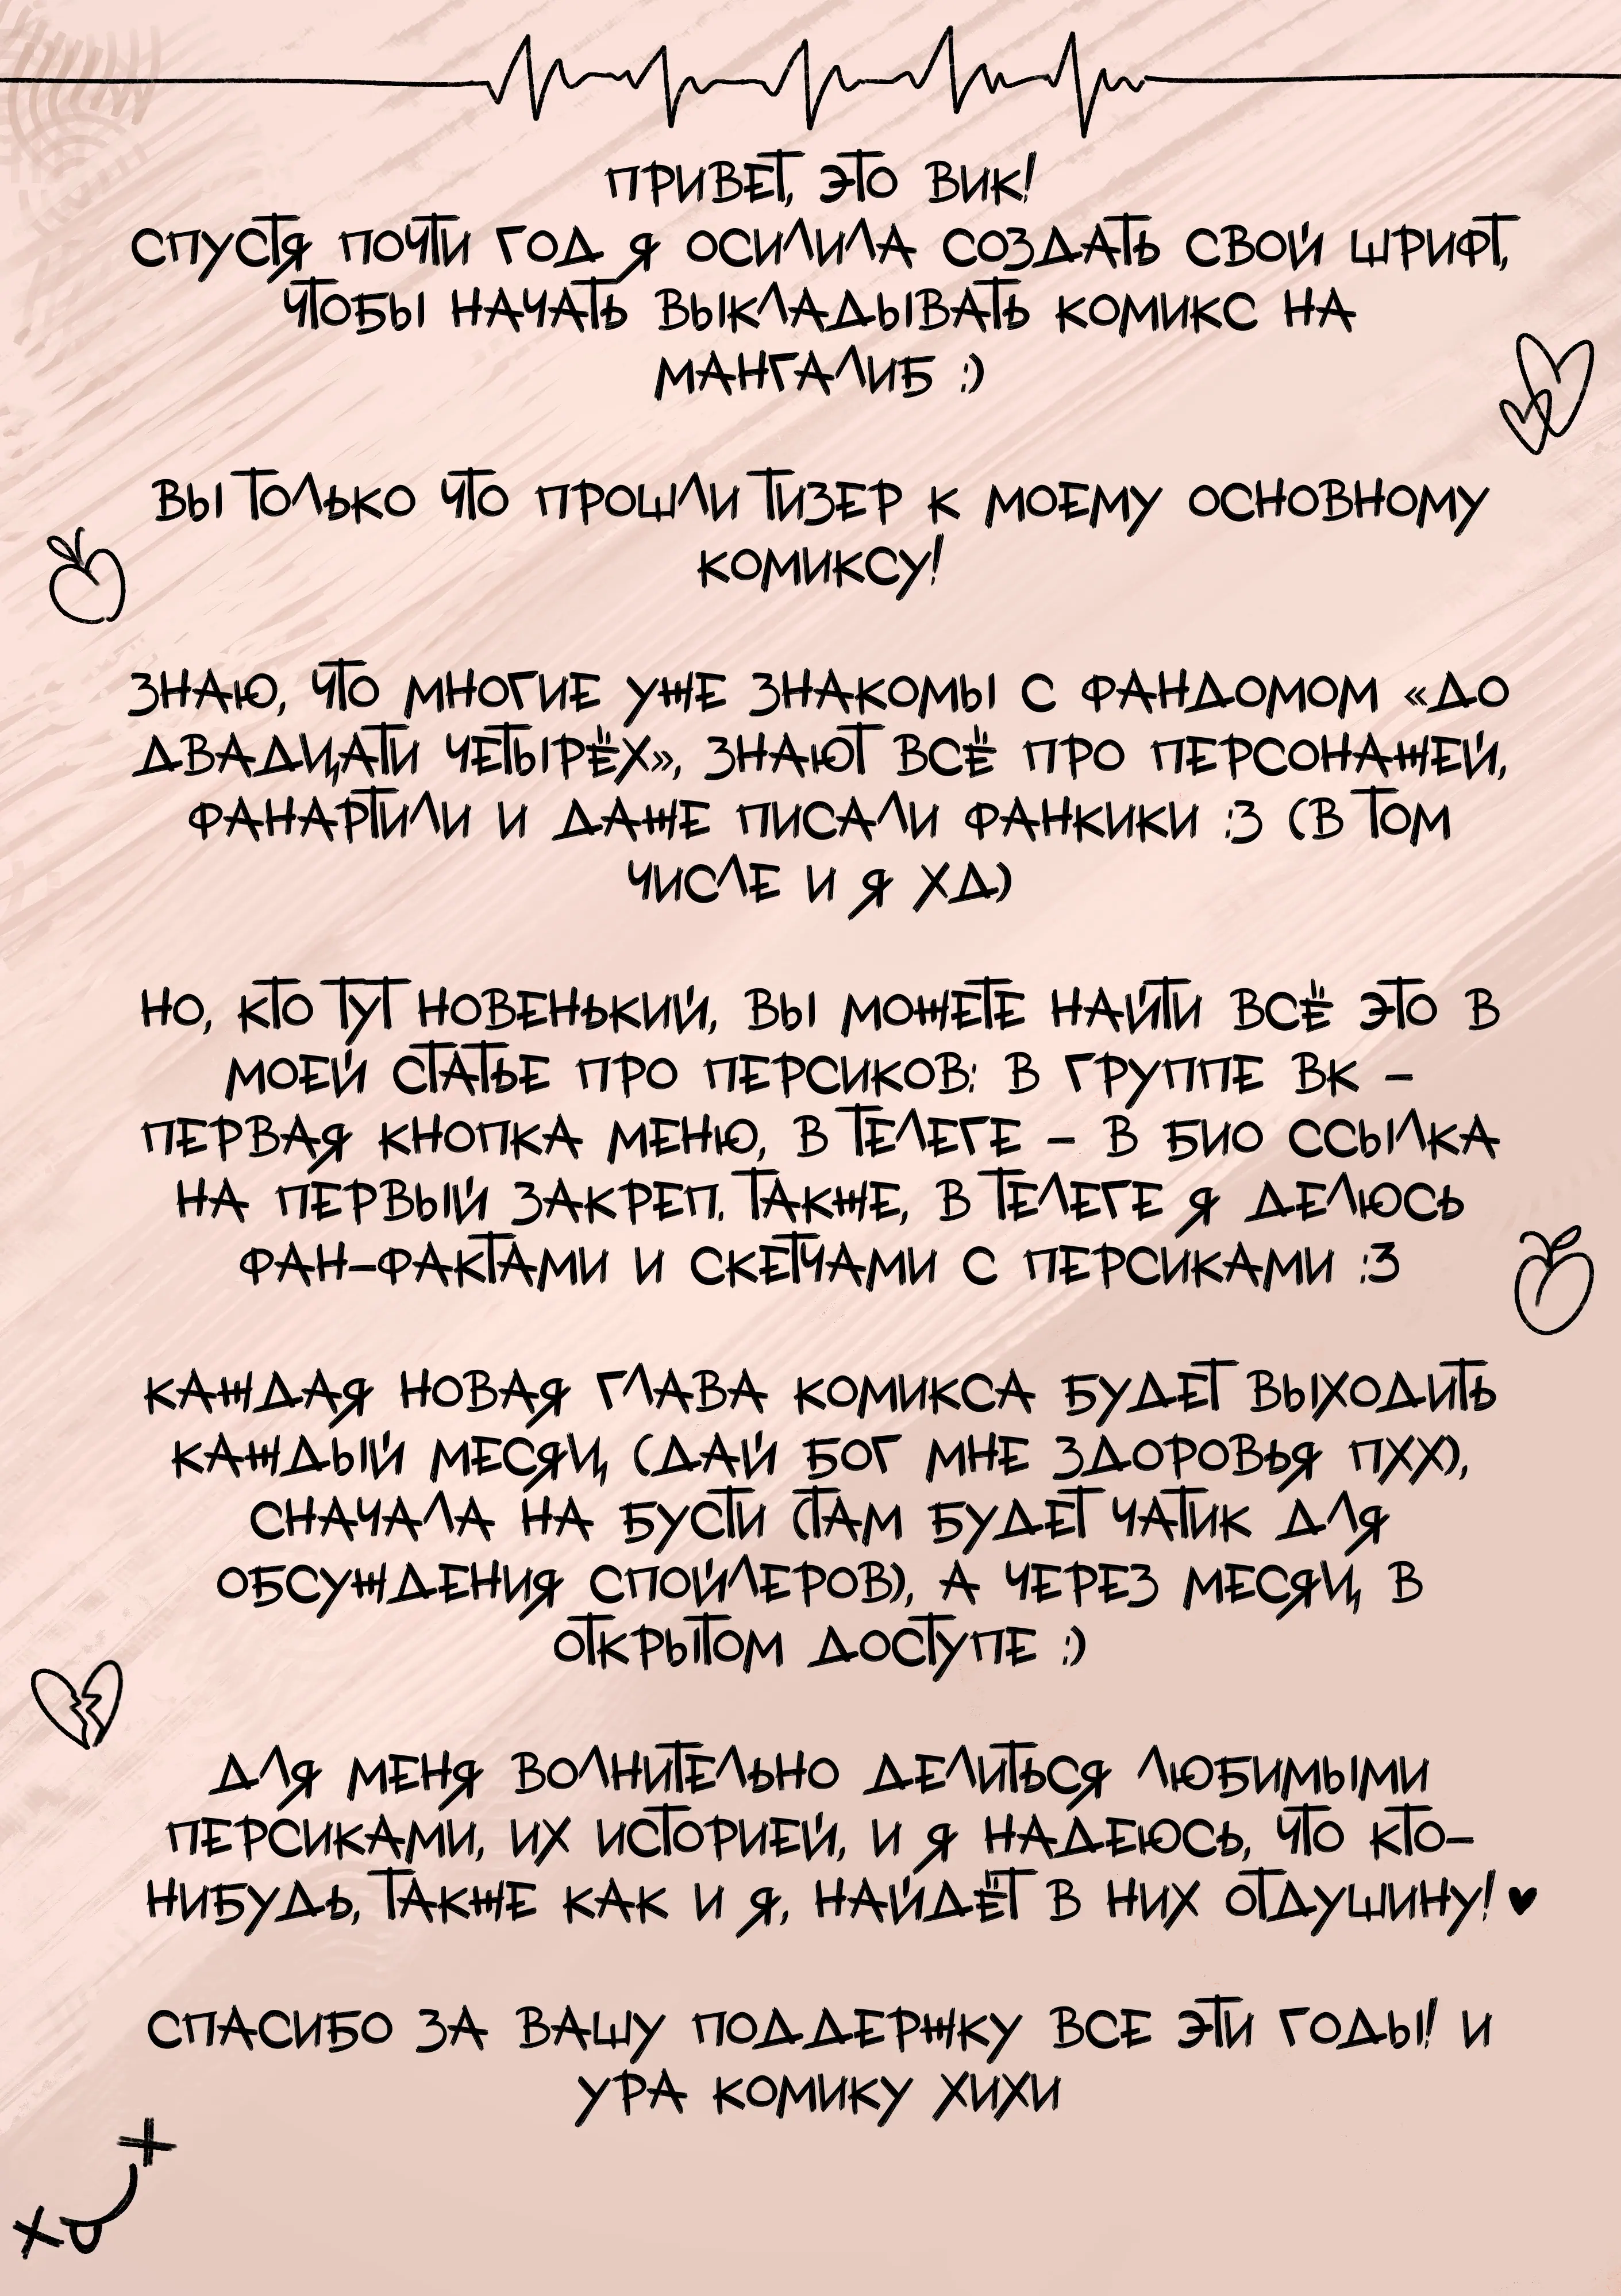 ПРИВЕТ, ЭТО ВИК!
СПУСТЯ ПОЧТИ ГОД Я ОСИЛИЛА СОЗДАТЬ СВОЙ ШРИФТ,
ЧТОБЫ НАЧАТЬ ВЫКЛАДЫВАТЬ КОМИКС НА
МАНГАЛИБ :)
ВЫ ТОЛЬКО ЧТО ПРОШЛИ ТИЗЕР К МОЕМУ ОСНОВНОМУ
КОМИКСУ!
ЗНАЮ, ЧТО МНОГИЕ УЖЕ ЗНАКОМЫ С ФАНДОМОМ «ДО
ДВАДЦАТИ ЧЕТЫРЁХ», ЗНАЮТ ВСЁ ПРО ПЕРСОНАЖЕЙ,
ФАНАРТИЛИ И ДАЖЕ ПИСАЛИ ФАНКИКИ :3 (В ТОМ
ЧИСЛЕ И Я ХД)
НО, КТО ТУТ НОВЕНЬКИЙ, ВЫ МОЖЕТЕ НАЙТИ ВСЁ ЭТО В
МОЕЙ СТАТЬЕ ПРО ПЕРСИКОВ: В ГРУППЕ ВК –
ПЕРВАЯ КНОПКА МЕНЮ, В ТЕЛЕГЕ – В БИО ССЫЛКА
НА ПЕРВЫЙ ЗАКРЕП. ТАКЖЕ, В ТЕЛЕГЕ Я ДЕЛЮСЬ
ФАН-ФАКТАМИ И СКЕТЧАМИ С ПЕРСИКАМИ :3
КАЖДАЯ НОВАЯ ГЛАВА КОМИКСА БУДЕТ ВЫХОДИТЬ
КАЖДЫЙ МЕСЯЦ (ДАЙ БОГ МНЕ ЗДОРОВЬЯ ПХХ),
СНАЧАЛА НА БУСТИ (ТАМ БУДЕТ ЧАТИК ДЛЯ
ОБСУЖДЕНИЯ СПОЙЛЕРОВ), А ЧЕРЕЗ МЕСЯЦ В
ОТКРЫТОМ ДОСТУПЕ :)
ДЛЯ МЕНЯ ВОЛНИТЕЛЬНО ДЕЛИТЬСЯ ЛЮБИМЫМИ
ПЕРСИКАМИ, ИХ ИСТОРИЕЙ, И Я НАДЕЮСЬ, ЧТО КТО-
НИБУДЬ, ТАКЖЕ КАК И Я, НАЙДЁТ В НИХ ОТДУШИНУ! ♥
СПАСИБО ЗА ВАШУ ПОДДЕРЖКУ ВСЕ ЭТИ ГОДЫ! И
УРА КОМИКУ ХИХИ